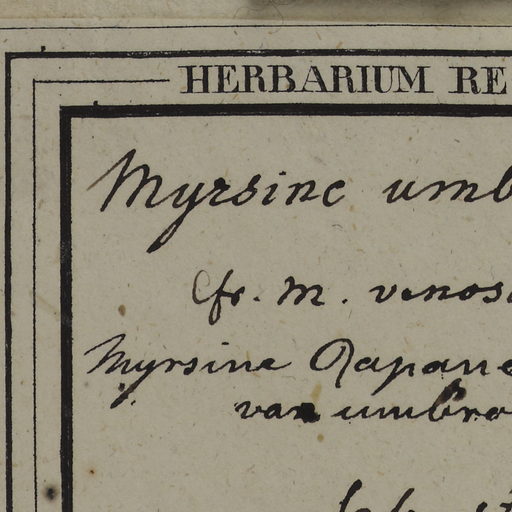 HERBARIUM RE
Myrsine umb
Cfr. M. venos
Myrsine Rapane
var umbro